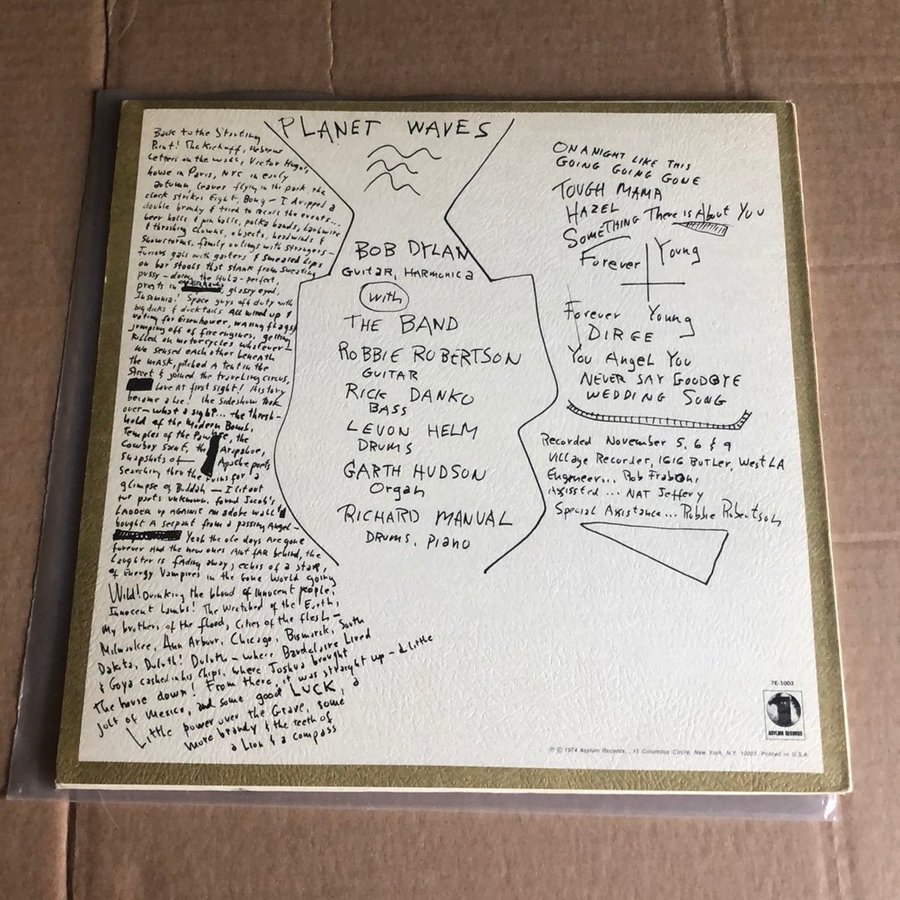 PLANET WAVES
Back to the Starting
Point! The Kickoff, Hebrew
letters on the wall, Victor Hugo's
house in Paris, NYC in early
autumn, leaves flying in the park, the
clock strikes Eight, Bong— I dropped a
double brandy & tried to recall the events...
beer halls & pin balls, polka bands, barbwire
& thrashing clowns, objects, headwinds &
Snowstorms, family outings with strangers—
Furious gals with garters & smeared lips
on bar stools that stank from sweating
pussy— doing the Hula— perfect,
priests in glossy eyed,
Insomnia! Space guys off duty with
big dicks & ducktails All wired up &
voting for Eisenhower, waving flags &
jumping off of fire engines, getting
killed on motorcycles whatever—
We sensed each other beneath
the mask, pitched a tent in the
Street & joined the traveling circus,
love at first sight! History
became a lie! the sideshow took
over— what a sight... the thresh-
hold of the Modern Bomb,
Temples of the Pawnee, the
Cowboy saint, the Arapahoe,
snapshots of— Apache poets
searching thru the ruins for a
glimpse of Buddah— I lit out
for parts unknown, found Jacob's
LADDER up AGAINST an adobe wall &
bought A serpent from a passing Angel—
Yeah the ole days Are gone
forever And the new ones Aint fAR behind, the
Laughter is fAding away, echos of a staR,
of Energy Vampires in the Gone World going
Wild! Drinking the blood of innocent people,
Innocent Lambs! The Wretched of the Earth,
My brothers of the flood, Cities of the flesh—
Milwaukee, Ann Arbour, Chicago, Bismarck, South
Dakota, Duluth! Duluth— where Baudelaire Lived
& Goya cashed in his Chips, where Joshua brought
the house down! From there, it was straight up— A Little
jolt of Mexico, and some good LUCK, a
Little power over the Grave, some
more brandy & the teeth of
a Lion & a compass
BOB DYLAN
GUITAR, HARMONICA
with
THE BAND
ROBBIE ROBERTSON
GUITAR
RICK DANKO
BASS
LEVON HELM
DRUMS
GARTH HUDSON
Organ
RICHARD MANUAL
DRUMS, Piano
ON A NIGHT LIKE THIS
GOING GOING GONE
TOUGH MAMA
HAZEL
SOMETHING There is About You
Forever Young
Forever Young
DIRGE
You Angel You
NEVER SAY GOODBYE
WEDDING SONG
Recorded November 5, 6 & 9
Village Recorder, 1616 BUTLER, West LA
Engineer... Rob Fraboni
Assissted... NAT Jeffery
Special Assistance... Robbie Robertson
7E-1003
ASYLUM RECORDS
℗ © 1974 Asylum Records, 15 Columbus Circle, New York, N.Y. 10023 Printed in U.S.A.